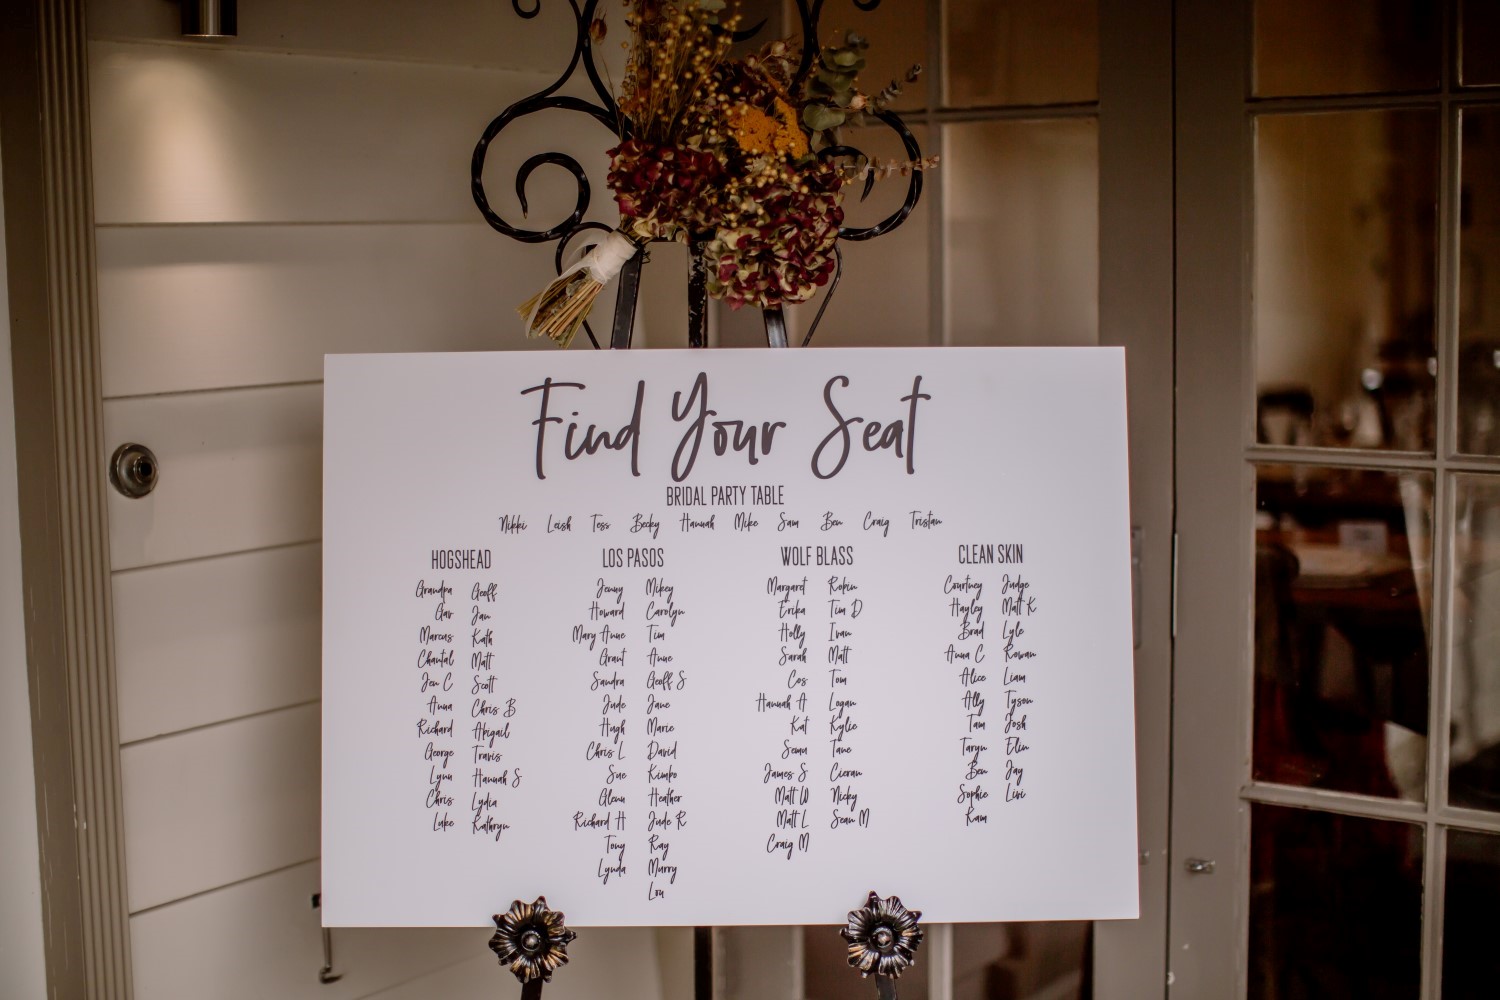 Find Your Seat
BRIDAL PARTY TABLE
Nikki Leish Tess Becky Hannah Mike Sam Ben Craig Tristan
HOGSHEAD
Grandpa Geoff
Gav Jan
Marcus Kath
Chantal Matt
Jen C Scott
Anna Chris B
Richard Abigail
George Travis
Lynn Hannah S
Chris Lydia
Luke Kathryn
LOS PASOS
Jenny Mikey
Howard Carolyn
Mary Anne Tim
Grant Anne
Sandra Geoff S
Jude Jane
Hugh Marie
Chris L David
Sue Kimbo
Glenn Heather
Richard H Jude R
Tony Ray
Lynda Murry
Lou
WOLF BLASS
Margaret Robin
Erika Tim D
Holly Ivan
Sarah Matt
Cos Tom
Hannah A Logan
Kat Kylie
Semu Tane
James S Cieran
Matt W Nicky
Matt L Sean M
Craig M
CLEAN SKIN
Courtney Judge
Hayley Matt K
Brad Lyle
Anna C Rowan
Alice Liam
Ally Tyson
Tam Josh
Taryn Elin
Ben Jay
Sophie Livi
Kam